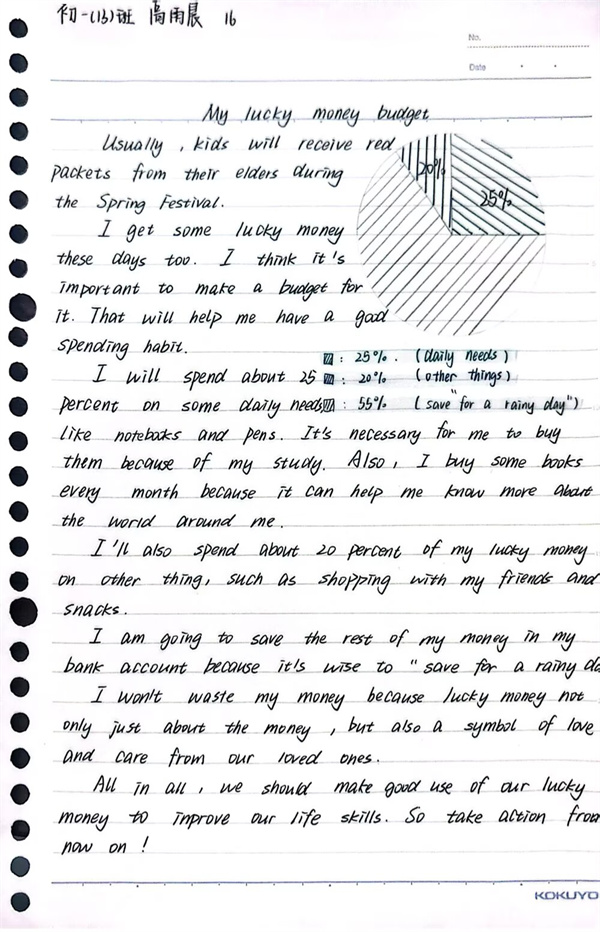 初一(13)班 高雨晨 16
No.
Date
My lucky money budget
Usually, kids will receive red
packets from their elders during
the Spring Festival.
I get some lucky money
these days too. I think it's
important to make a budget for
it. That will help me have a good
spending habit.
20%
25%
: 25%. (daily needs)
: 20% (other things)
: 55% (save "for a rainy day")
I will spend about 25
percent on some daily needs
like notebooks and pens. It's necessary for me to buy
them because of my study. Also, I buy some books
every month because it can help me know more about
the world around me.
I'll also spend about 20 percent of my lucky money
on other thing, such as shopping with my friends and
snacks.
I am going to save the rest of my money in my
bank account because it's wise to "save for a rainy da
I won't waste my money because lucky money not
only just about the money, but also a symbol of love
and care from our loved ones.
All in all, we should make good use of our lucky
money to inprove our life skills. So take action from
now on!
KOKUYO